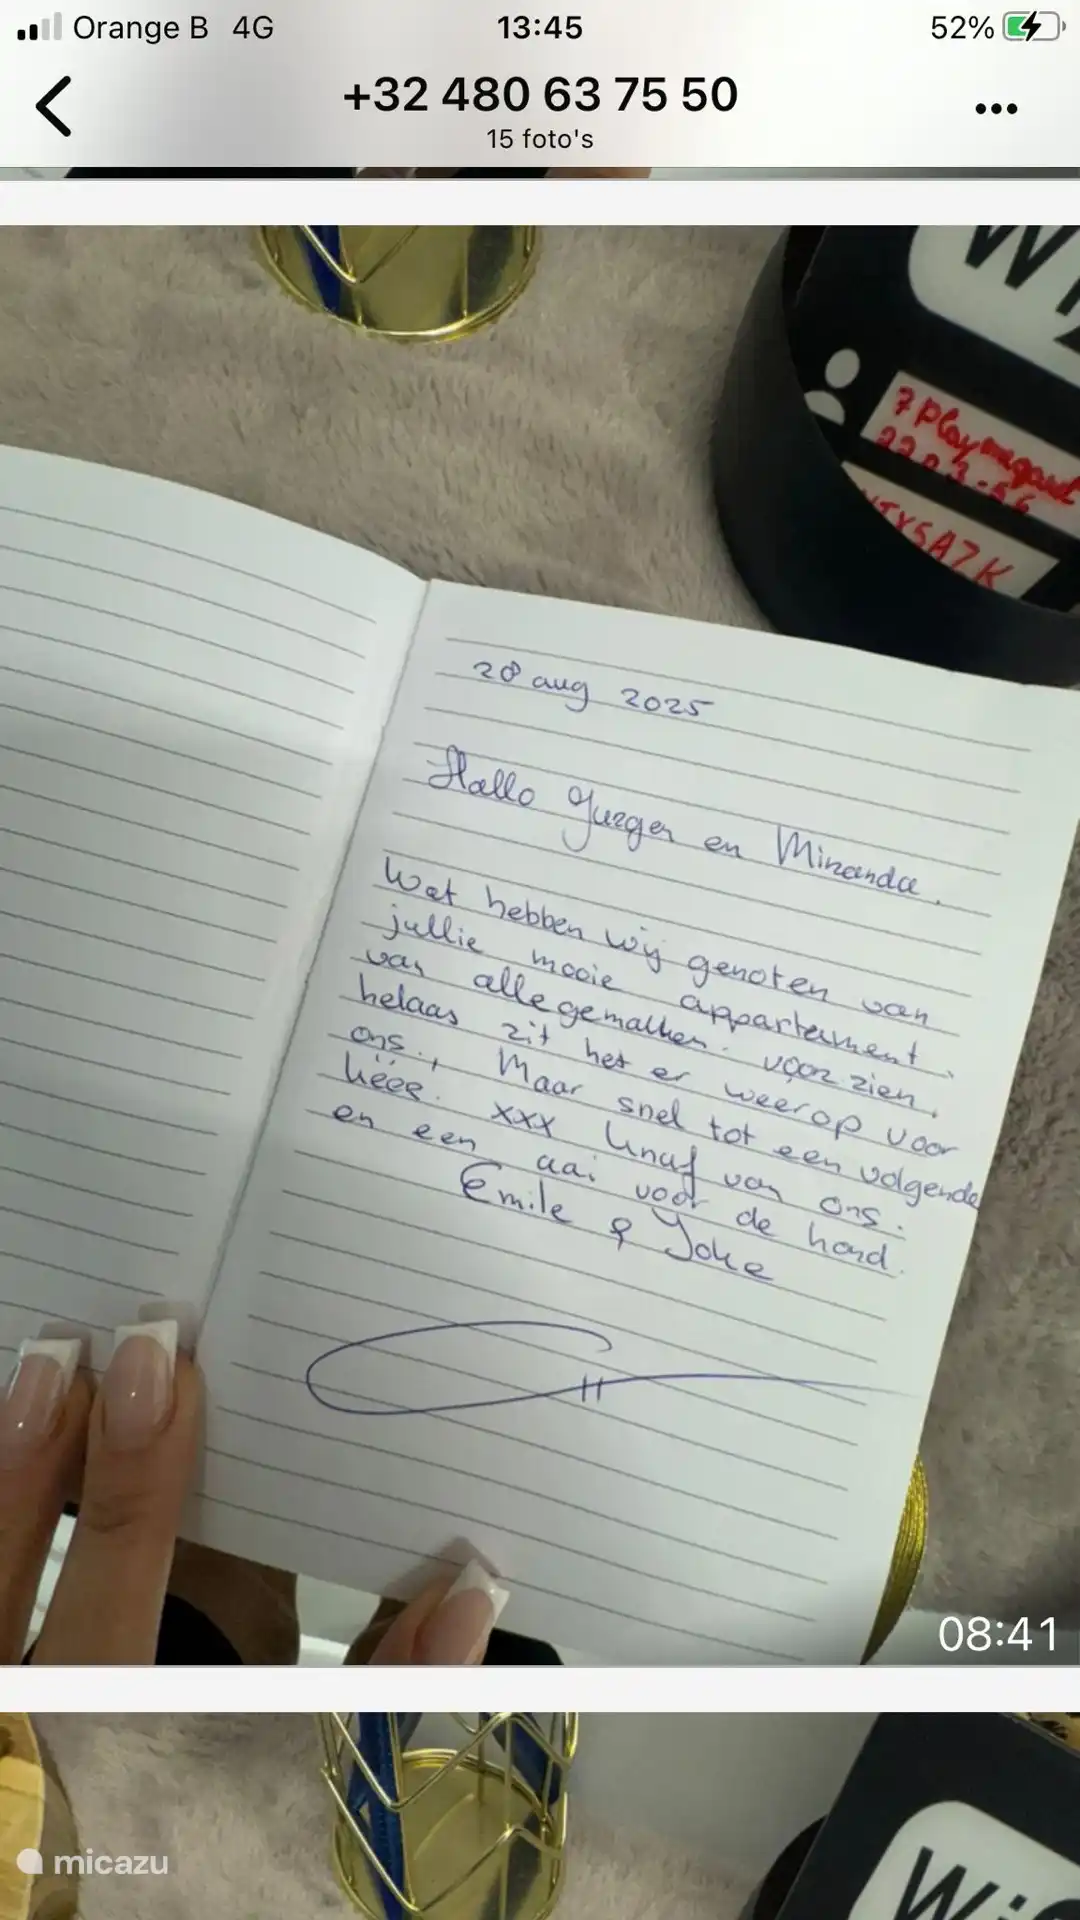 Orange B 4G 13:45 52%
+32 480 63 75 50
15 foto's
Wi
7Playmegant
NTXSA7K
28 aug 2025
Hallo Jurgen en Miranda.
Wat hebben wij genoten van
jullie mooie appartement.
van alle gemakken voorzien,
helaas zit het er weer op voor
ons., Maar snel tot een volgende
hëëe. xxx Knuf van ons.
en een aai voor de hond.
Emile & Joke
08:41
micazu
Wi